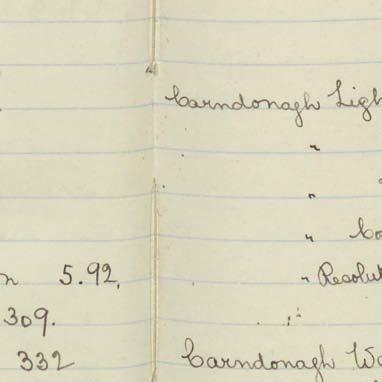 Carndonagh Ligh
"
"
" Co
n 5.92.
" Resolut
309.
"
332
Carndonagh Wa